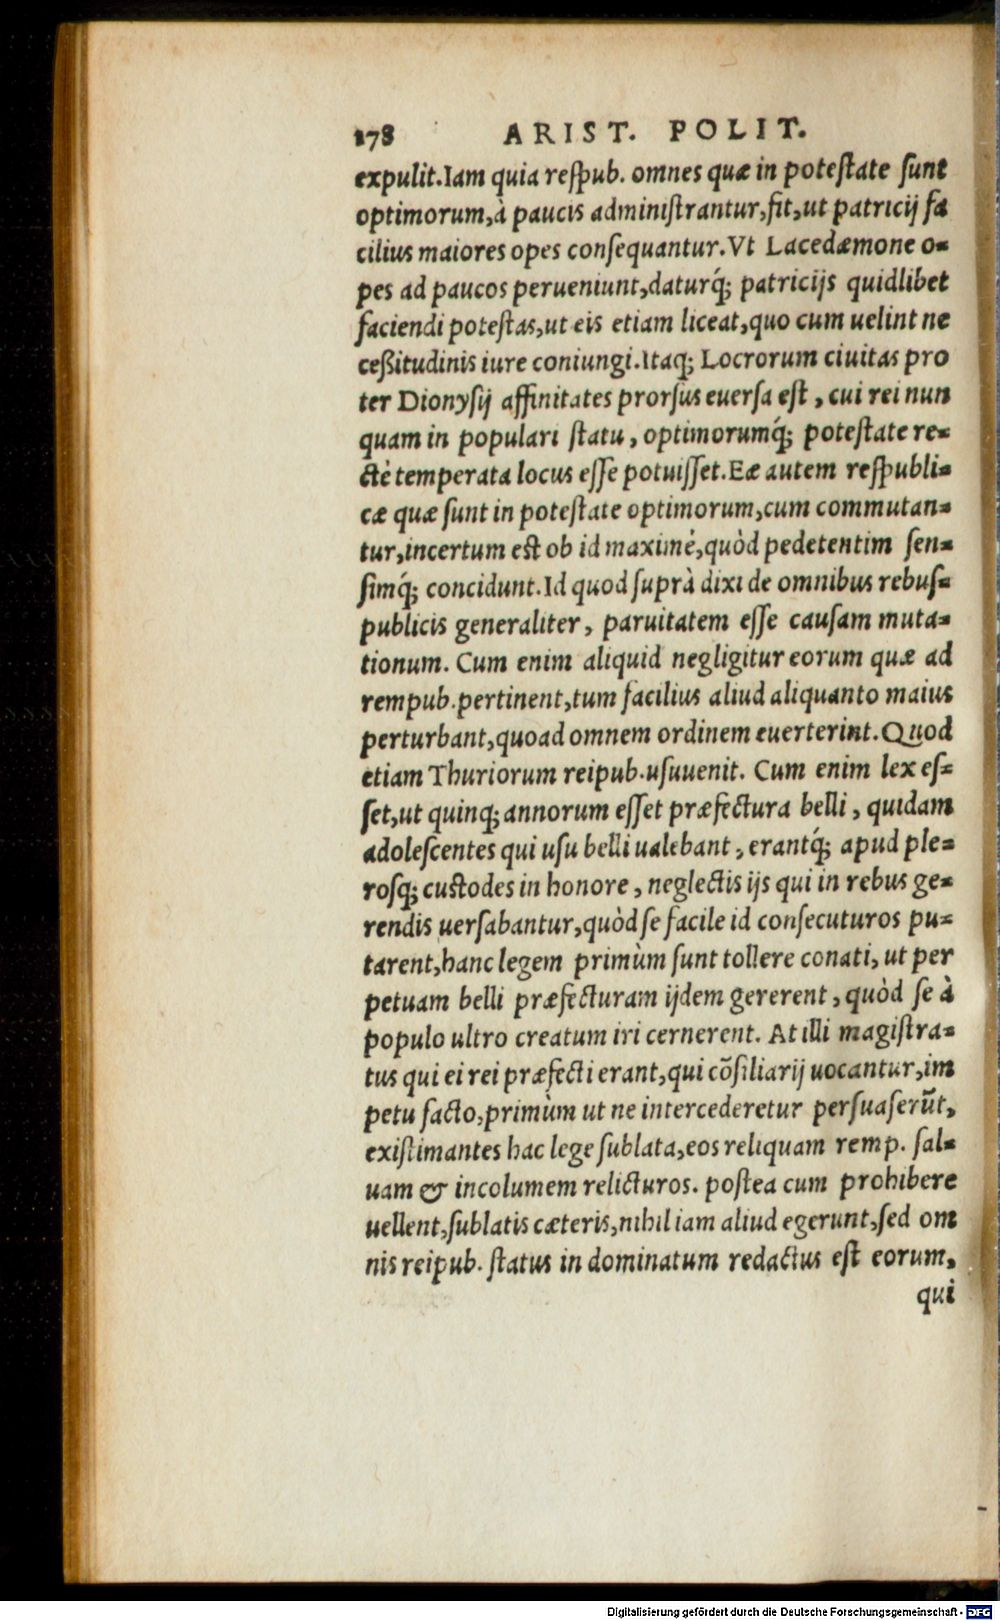 178 ARIST. POLIT.
expulit. Iam quia respub. omnes quæ in potestate sunt
optimorum, à paucis administrantur, fit, ut patricij fa
cilius maiores opes consequantur. Vt Lacedæmone o-
pes ad paucos perueniunt, daturq́; patricijs quidlibet
faciendi potestas, ut eis etiam liceat, quo cum uelint ne
ceßitudinis iure coniungi. Itaq; Locrorum ciuitas pro
ter Dionysij affinitates prorsus euersa est, cui rei nun
quam in populari statu, optimorumq́; potestate re-
ctè temperata locus esse potuisset. Eæ autem respubli-
cæ quæ sunt in potestate optimorum, cum commutan-
tur, incertum est ob id maximè, quòd pedetentim sen-
simq́; concidunt. Id quod suprà dixi de omnibus rebus-
publicis generaliter, paruitatem esse causam muta-
tionum. Cum enim aliquid negligitur eorum quæ ad
rempub. pertinent, tum facilius aliud aliquanto maius
perturbant, quoad omnem ordinem euerterint. Quod
etiam Thuriorum reipub. usuuenit. Cum enim lex es-
set, ut quinq; annorum esset præfectura belli, quidam
adolescentes qui usu belli ualebant, erantq́; apud ple-
rosq; custodes in honore, neglectis ijs qui in rebus ge-
rendis uersabantur, quòd se facile id consecuturos pu-
tarent, hanc legem primùm sunt tollere conati, ut per
petuam belli præfecturam ijdem gererent, quòd se à
populo ultro creatum iri cernerent. At illi magistra-
tus qui ei rei præfecti erant, qui cõsiliarij uocantur, im
petu facto, primùm ut ne intercederetur persuaserũt,
existimantes hac lege sublata, eos reliquam remp. sal-
uam & incolumem relicturos. postea cum prohibere
uellent, sublatis cæteris, nihil iam aliud egerunt, sed om
nis reipub. status in dominatum redactus est eorum,
qui
Digitalisierung gefördert durch die Deutsche Forschungsgemeinschaft - DFG